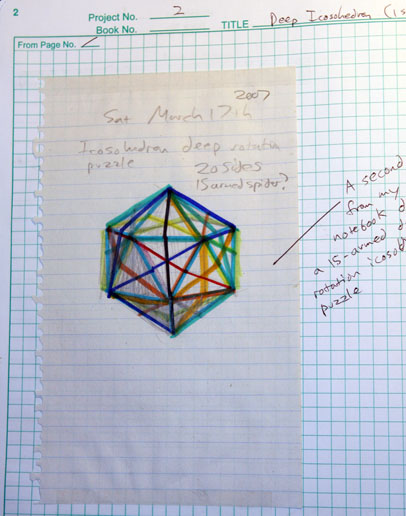 2
Project No. 2
Book No.
TITLE Deep Icosohedron (1 s
From Page No.
2007
Sat March 17th
Icosohedron deep rotation
puzzle
20 sides
15 armed spider?
A second
from my
notebook
a 15-armed d
rotation
puzzle